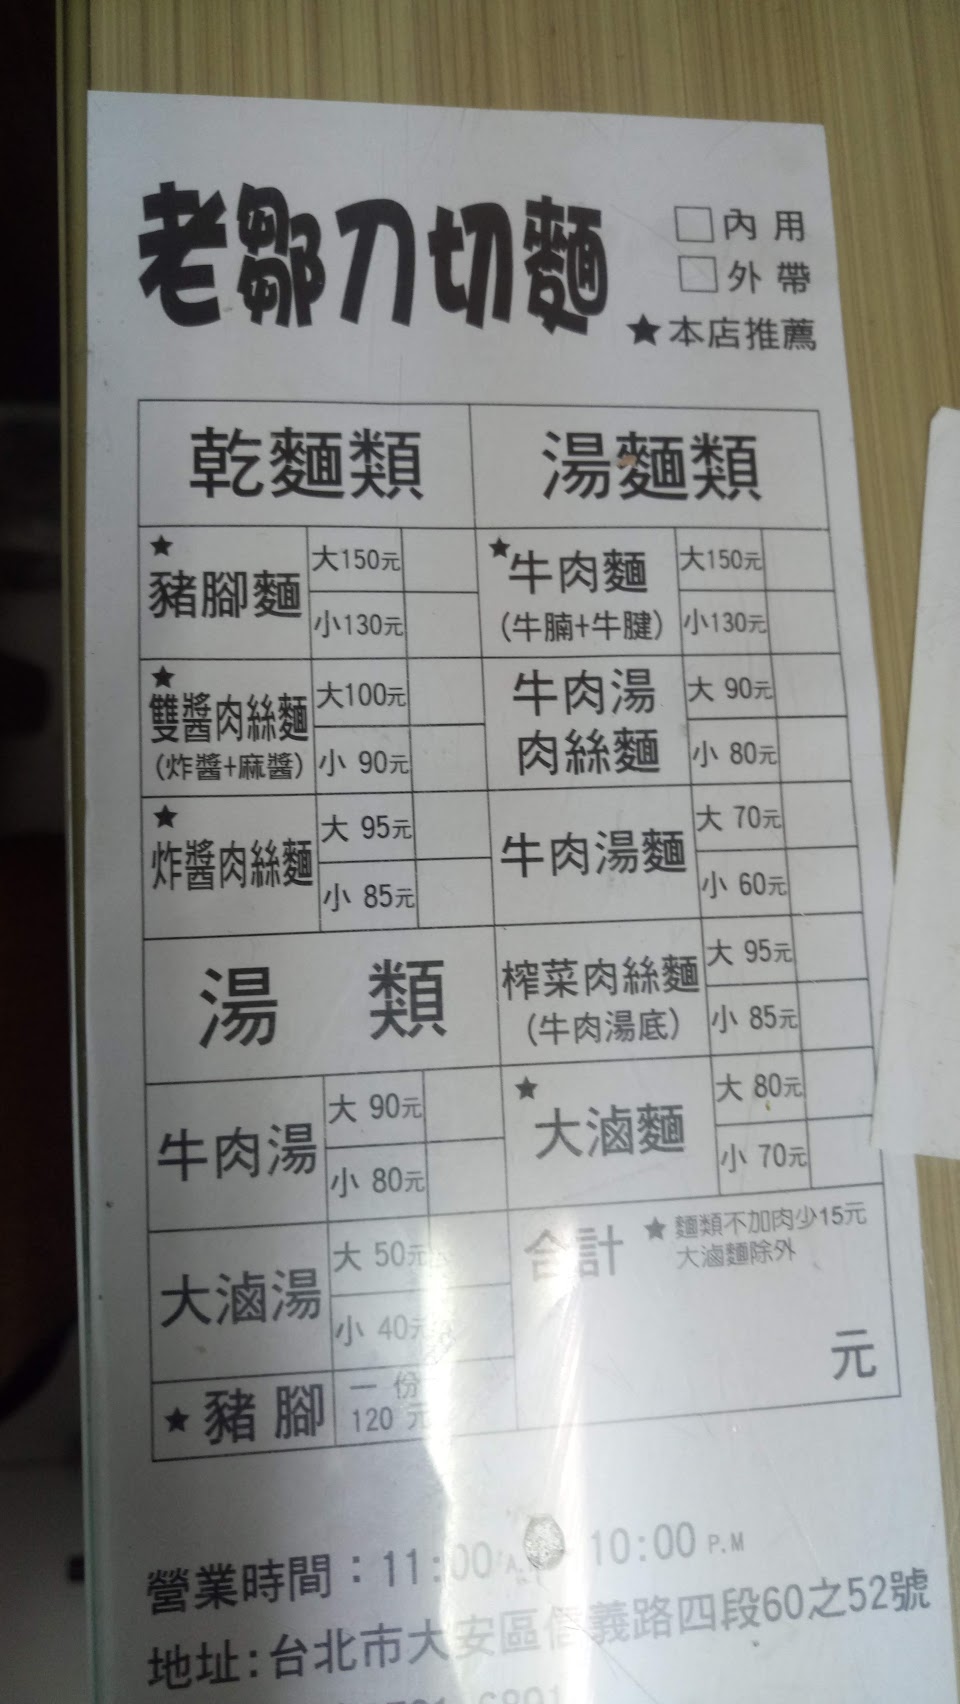 老鄒刀切麵
□內用
□外帶
★本店推薦
乾麵類
★
豬腳麵
大150元
小130元
★
雙醬肉絲麵
(炸醬+麻醬)
大100元
小 90元
★
炸醬肉絲麵
大 95元
小 85元
湯 類
牛肉湯
大 90元
小 80元
大滷湯
大 50元
小 40元
★豬腳
一份
120元
湯麵類
★牛肉麵
(牛腩+牛腱)
大150元
小130元
牛肉湯
肉絲麵
大 90元
小 80元
牛肉湯麵
大 70元
小 60元
榨菜肉絲麵
(牛肉湯底)
大 95元
小 85元
★
大滷麵
大 80元
小 70元
合計
★麵類不加肉少15元
大滷麵除外
元
營業時間：11:00 10:00 P.M
地址:台北市大安區信義路四段60之52號